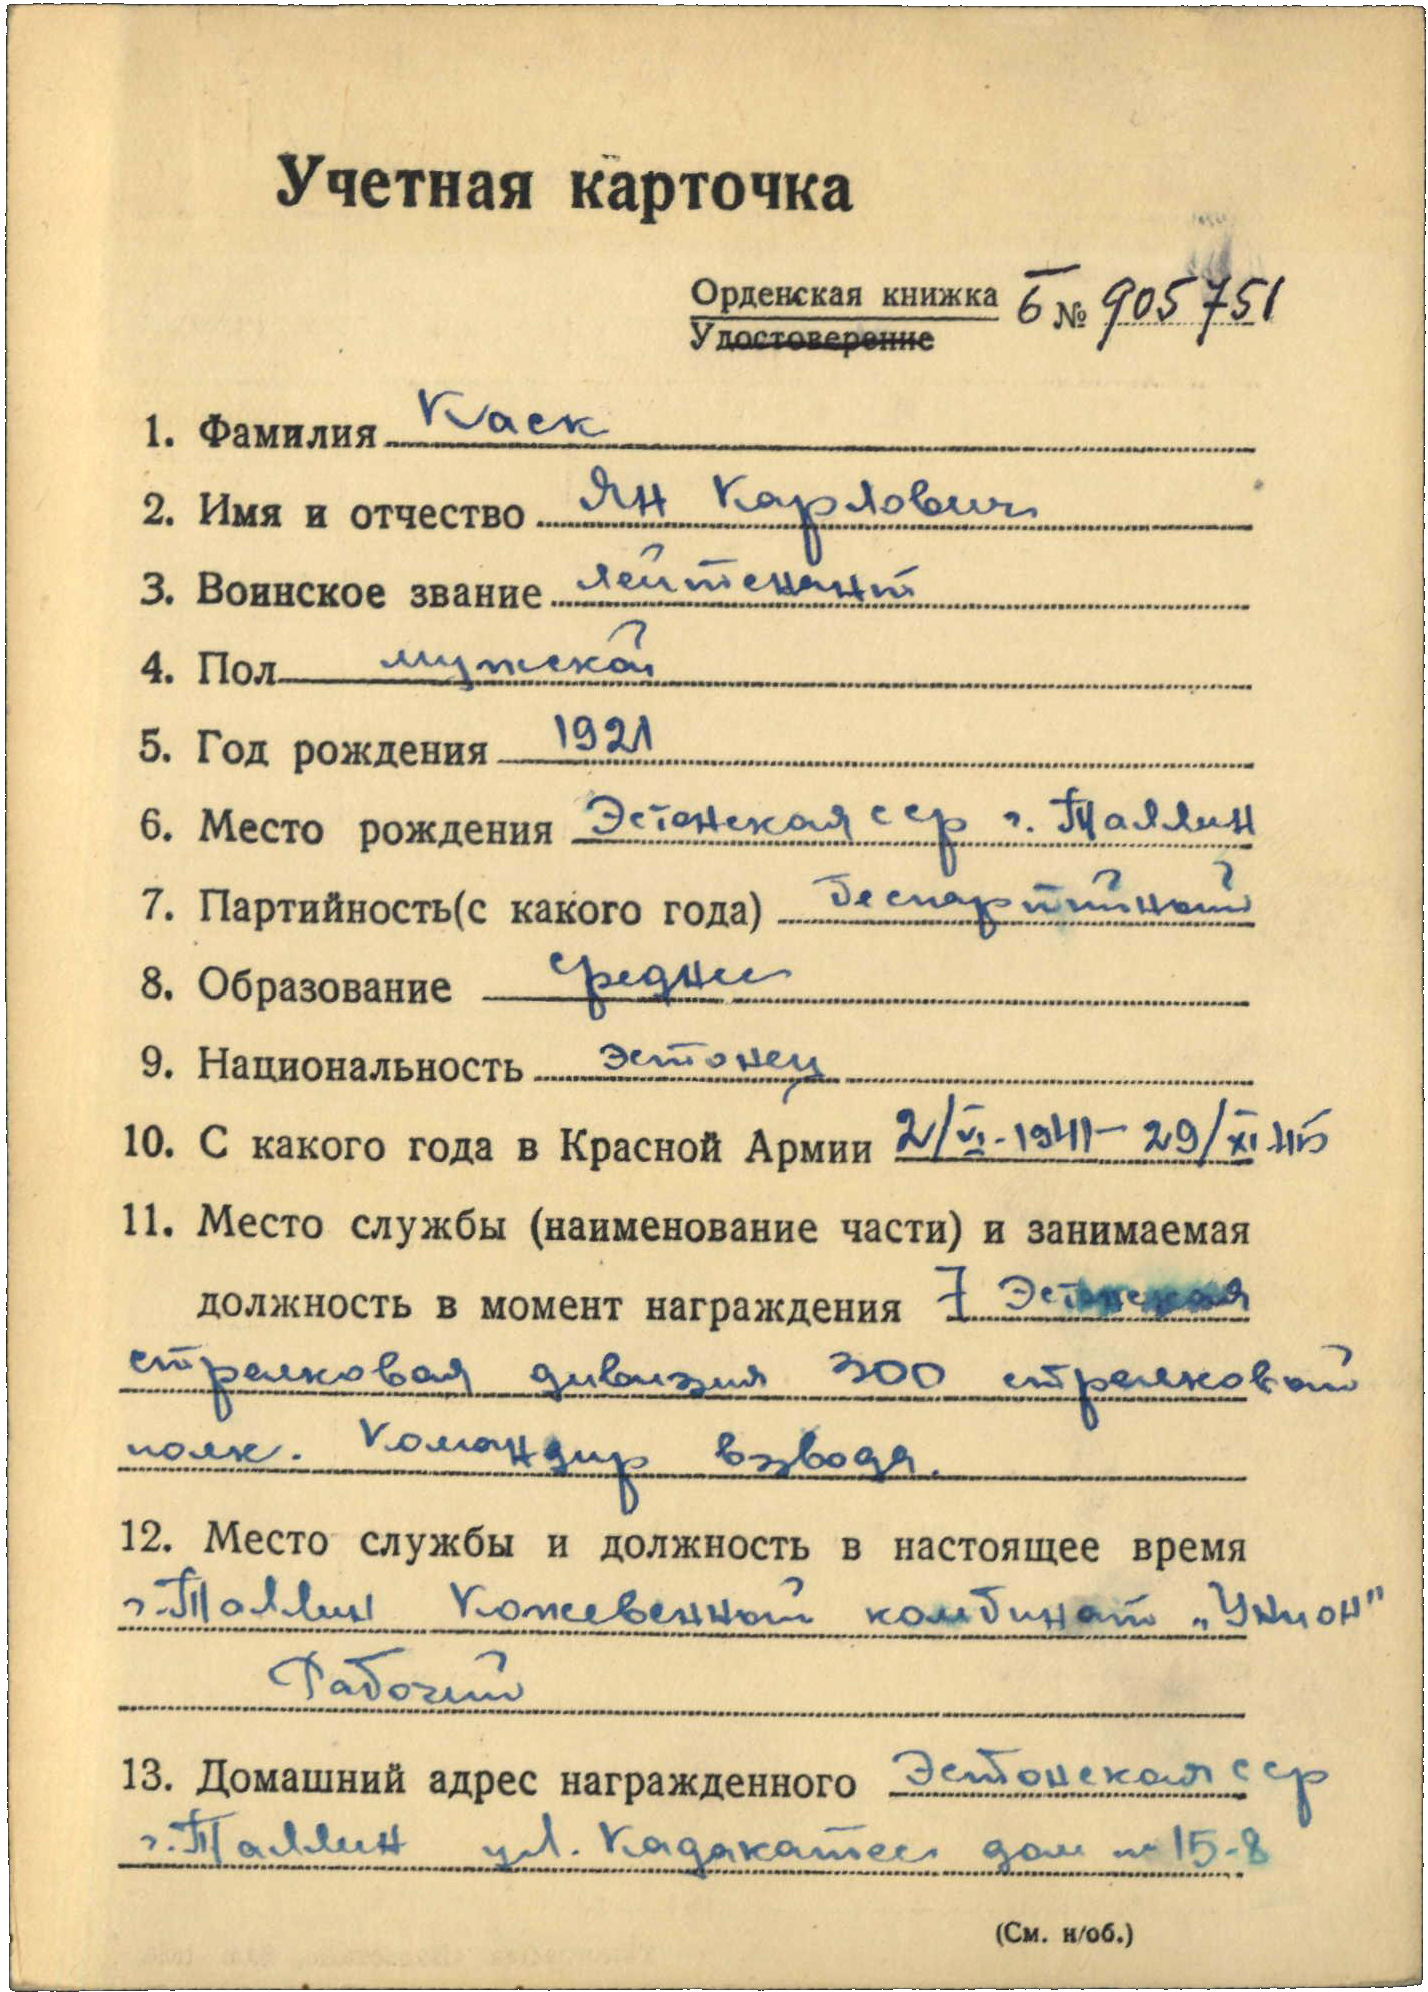 Учетная карточка
Орденская книжка Б № 905751
Удостоверение
1. Фамилия Каск
2. Имя и отчество Ян Карлович
3. Воинское звание лейтенант
4. Пол мужской
5. Год рождения 1921
6. Место рождения Эстонская сср г. Таллин
7. Партийность(с какого года) беспартийный
8. Образование среднее
9. Национальность эстонец
10. С какого года в Красной Армии 2/VI-1941- 29/XI 45
11. Место службы (наименование части) и занимаемая
должность в момент награждения 7 Эстонская
стрелковая дивизия 300 стрелковый
полк. Командир взвода.
12. Место службы и должность в настоящее время
г. Таллин Кожевенный комбинат „Унион"
Рабочий
13. Домашний адрес награжденного Эстонская сср
г. Таллин ул. Кадакатее дом № 15-8
(См. н/об.)